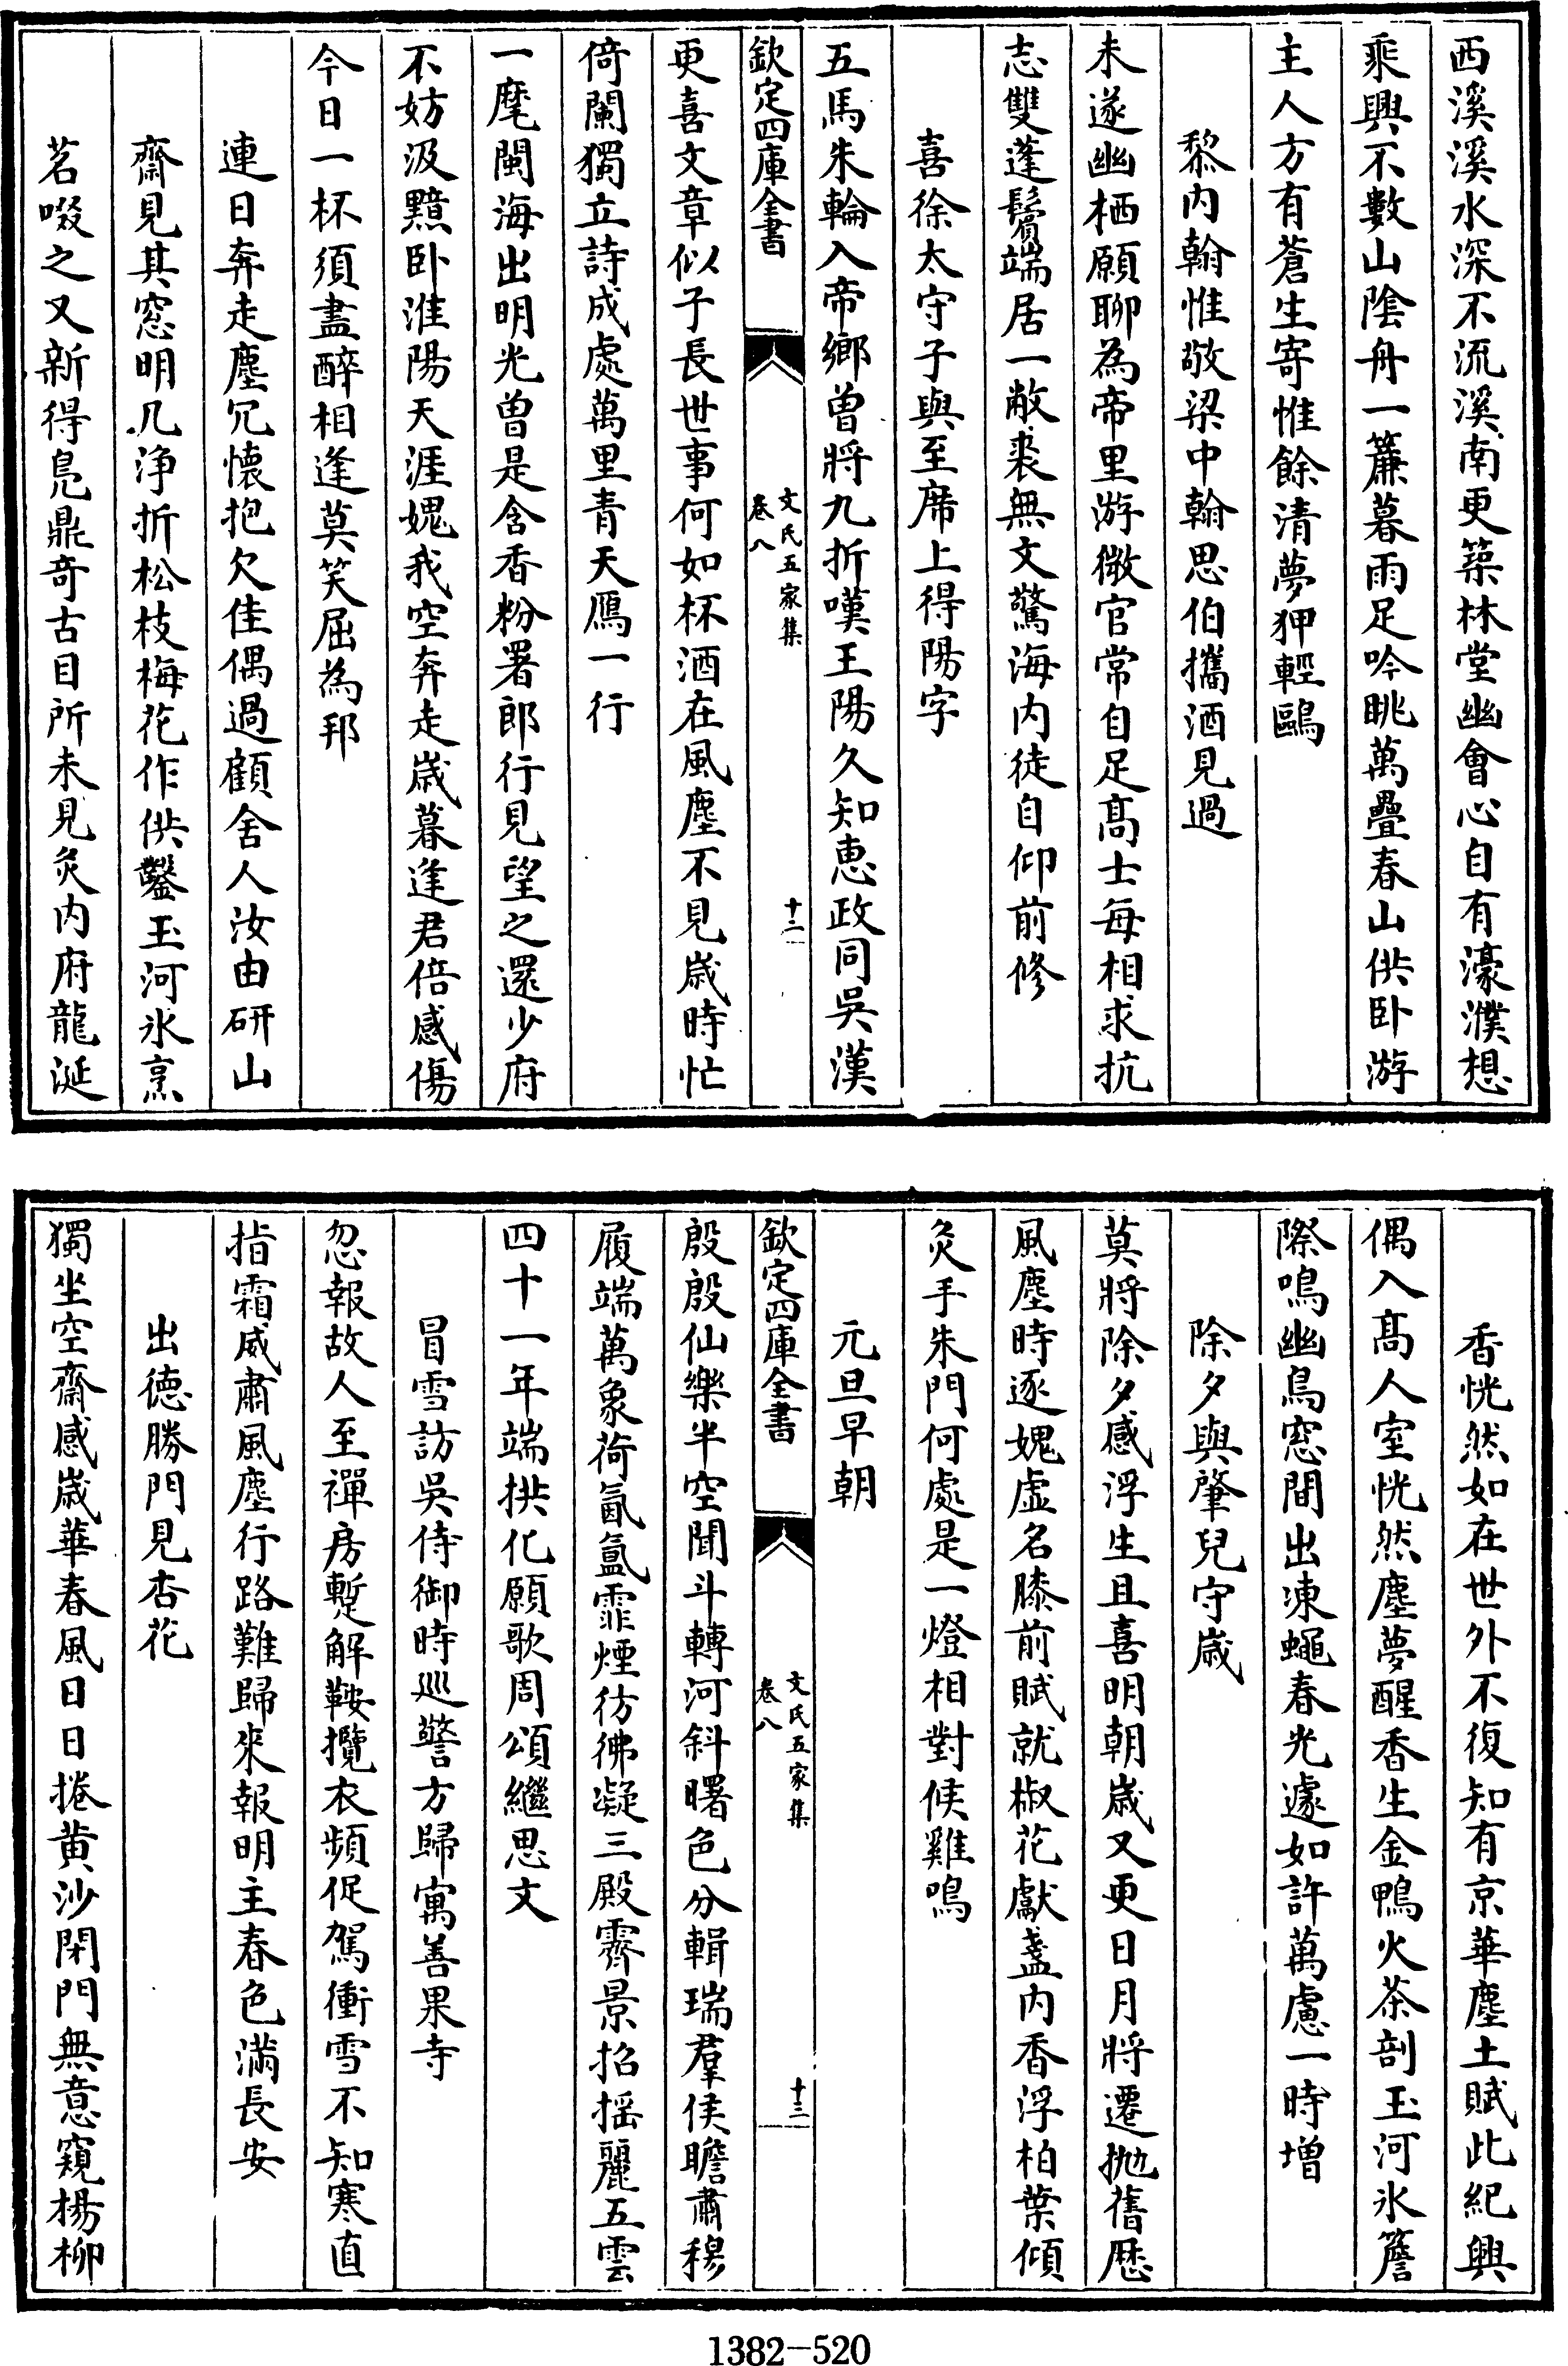 西溪溪水深不流溪南更築林堂幽會心自有濠濮想
乘興不數山陰舟一簾暮雨足吟眺萬疊春山供卧游
主人方有蒼生寄惟餘清夢狎輕鷗
黎內翰惟敬梁中翰思伯攜酒見過
未遂幽栖願聊為帝里游微官常自足髙士每相求抗
志雙蓬鬢端居一敝裘無文驚海内徒自仰前修
喜徐太守子與至席上得陽字
五馬朱輪入帝鄉曾將九折嘆王陽久知惠政同吳漢
欽定四庫全書
文氏五家集
卷八
十二
更喜文章似子長世事何如杯酒在風塵不見歳時忙
倚闌獨立詩成處萬里青天鴈一行
一麾閩海出明光曾是含香粉署郎行見望之還少府
不妨汲黯卧淮陽天涯媿我空奔走歳暮逢君倍感傷
今日一杯須盡醉相逢莫笑屈為邦
連日奔走塵冗懷抱欠佳偶過顧舍人汝由研山
齋見其窓明几浄折松枝梅花作供鑿玉河氷烹
茗啜之又新得鳬鼎奇古目所未見炙内府龍涎
香恍然如在世外不復知有京華塵土賦此紀興
偶入髙人室恍然塵夢醒香生金鴨火茶剖玉河氷簷
際鳴幽鳥窓間出凍蠅春光遽如許萬慮一時増
除夕與肇兒守歳
莫將除夕感浮生且喜明朝歳又更日月將遷抛舊歴
風塵時逐媿虚名膝前賦就椒花獻盞内香浮柏葉傾
炙手朱門何處是一燈相對候雞鳴
元旦早朝
欽定四庫全書
文氏五家集
卷八
十三
殷殷仙樂半空聞斗轉河斜曙色分輯瑞羣侯瞻肅穆
履端萬象荷氤氲霏煙彷彿凝三殿霽景招摇麗五雲
四十一年端拱化願歌周頌繼思文
冒雪訪吳侍御時巡警方歸寓善果寺
忽報故人至禪房暫解鞍攬衣頻促駕衝雪不知寒直
指霜威肅風塵行路難歸來報明主春色滿長安
出徳勝門見杏花
獨坐空齋感歳華春風日日捲黄沙閉門無意窺楊柳
1382-520